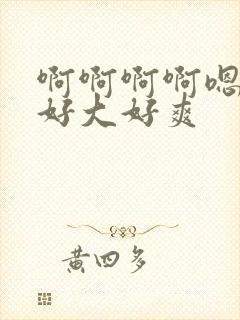 啊啊啊啊嗯
好大好爽
黄四多